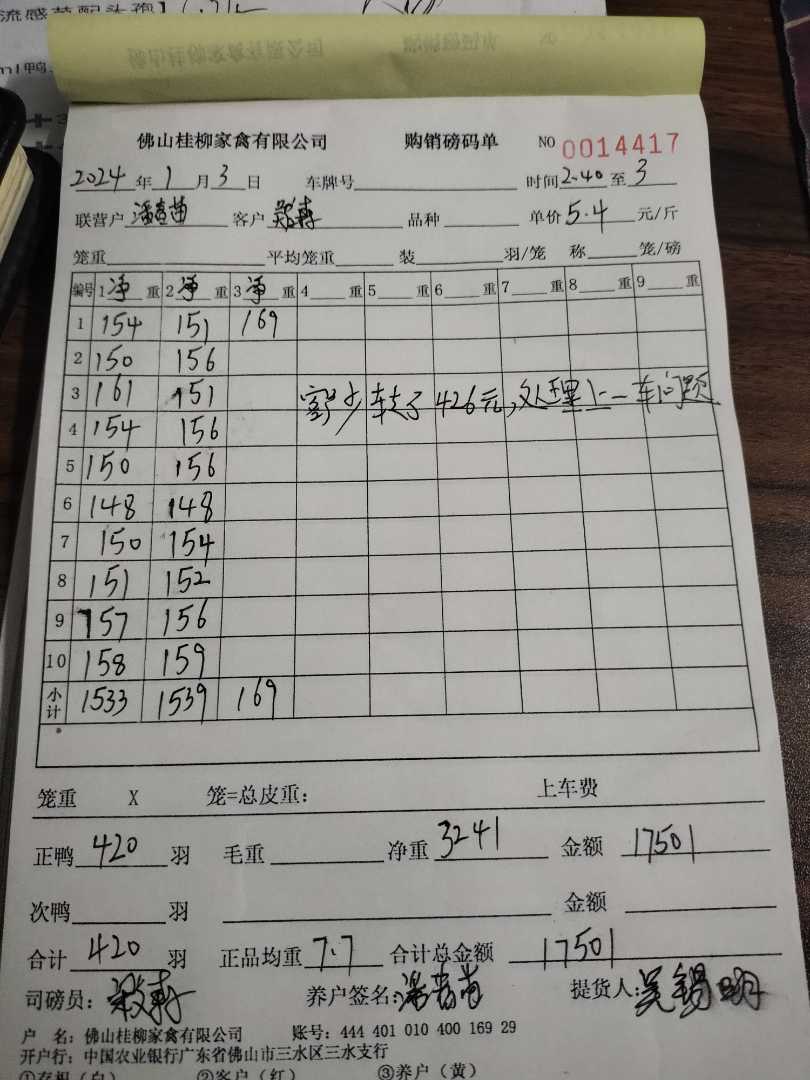 流感苗配头孢
ml鸭
佛山桂柳家禽有限公司 购销磅码单 NO 0014417
2024 年 1 月 3 日 车牌号 时间 2.40 至 3
联营户 客户 品种 单价 5.4 元/斤
笼重 平均笼重 装 羽/笼 称 笼/磅
编号 1 净 重 2 净 重 3 净 重 4 重 5 重 6 重 7 重 8 重 9 重
1 154 151 169
2 150 156
3 161 151 少转了426元,处理上一车问题
4 154 156
5 150 156
6 148 148
7 150 154
8 151 152
9 157 156
10 158 159
小计 1533 1539 169
笼重 X 笼=总皮重: 上车费
正鸭 420 羽 毛重 净重 3241 金额 17501
次鸭 羽 金额
合计 420 羽 正品均重 7.7 合计总金额 17501
司磅员: 养户签名: 提货人: 吴锡明
户 名: 佛山桂柳家禽有限公司 账号: 444 401 010 400 169 29
开户行: 中国农业银行广东省佛山市三水区三水支行
①存根(白) ②客户(红) ③养户(黄)